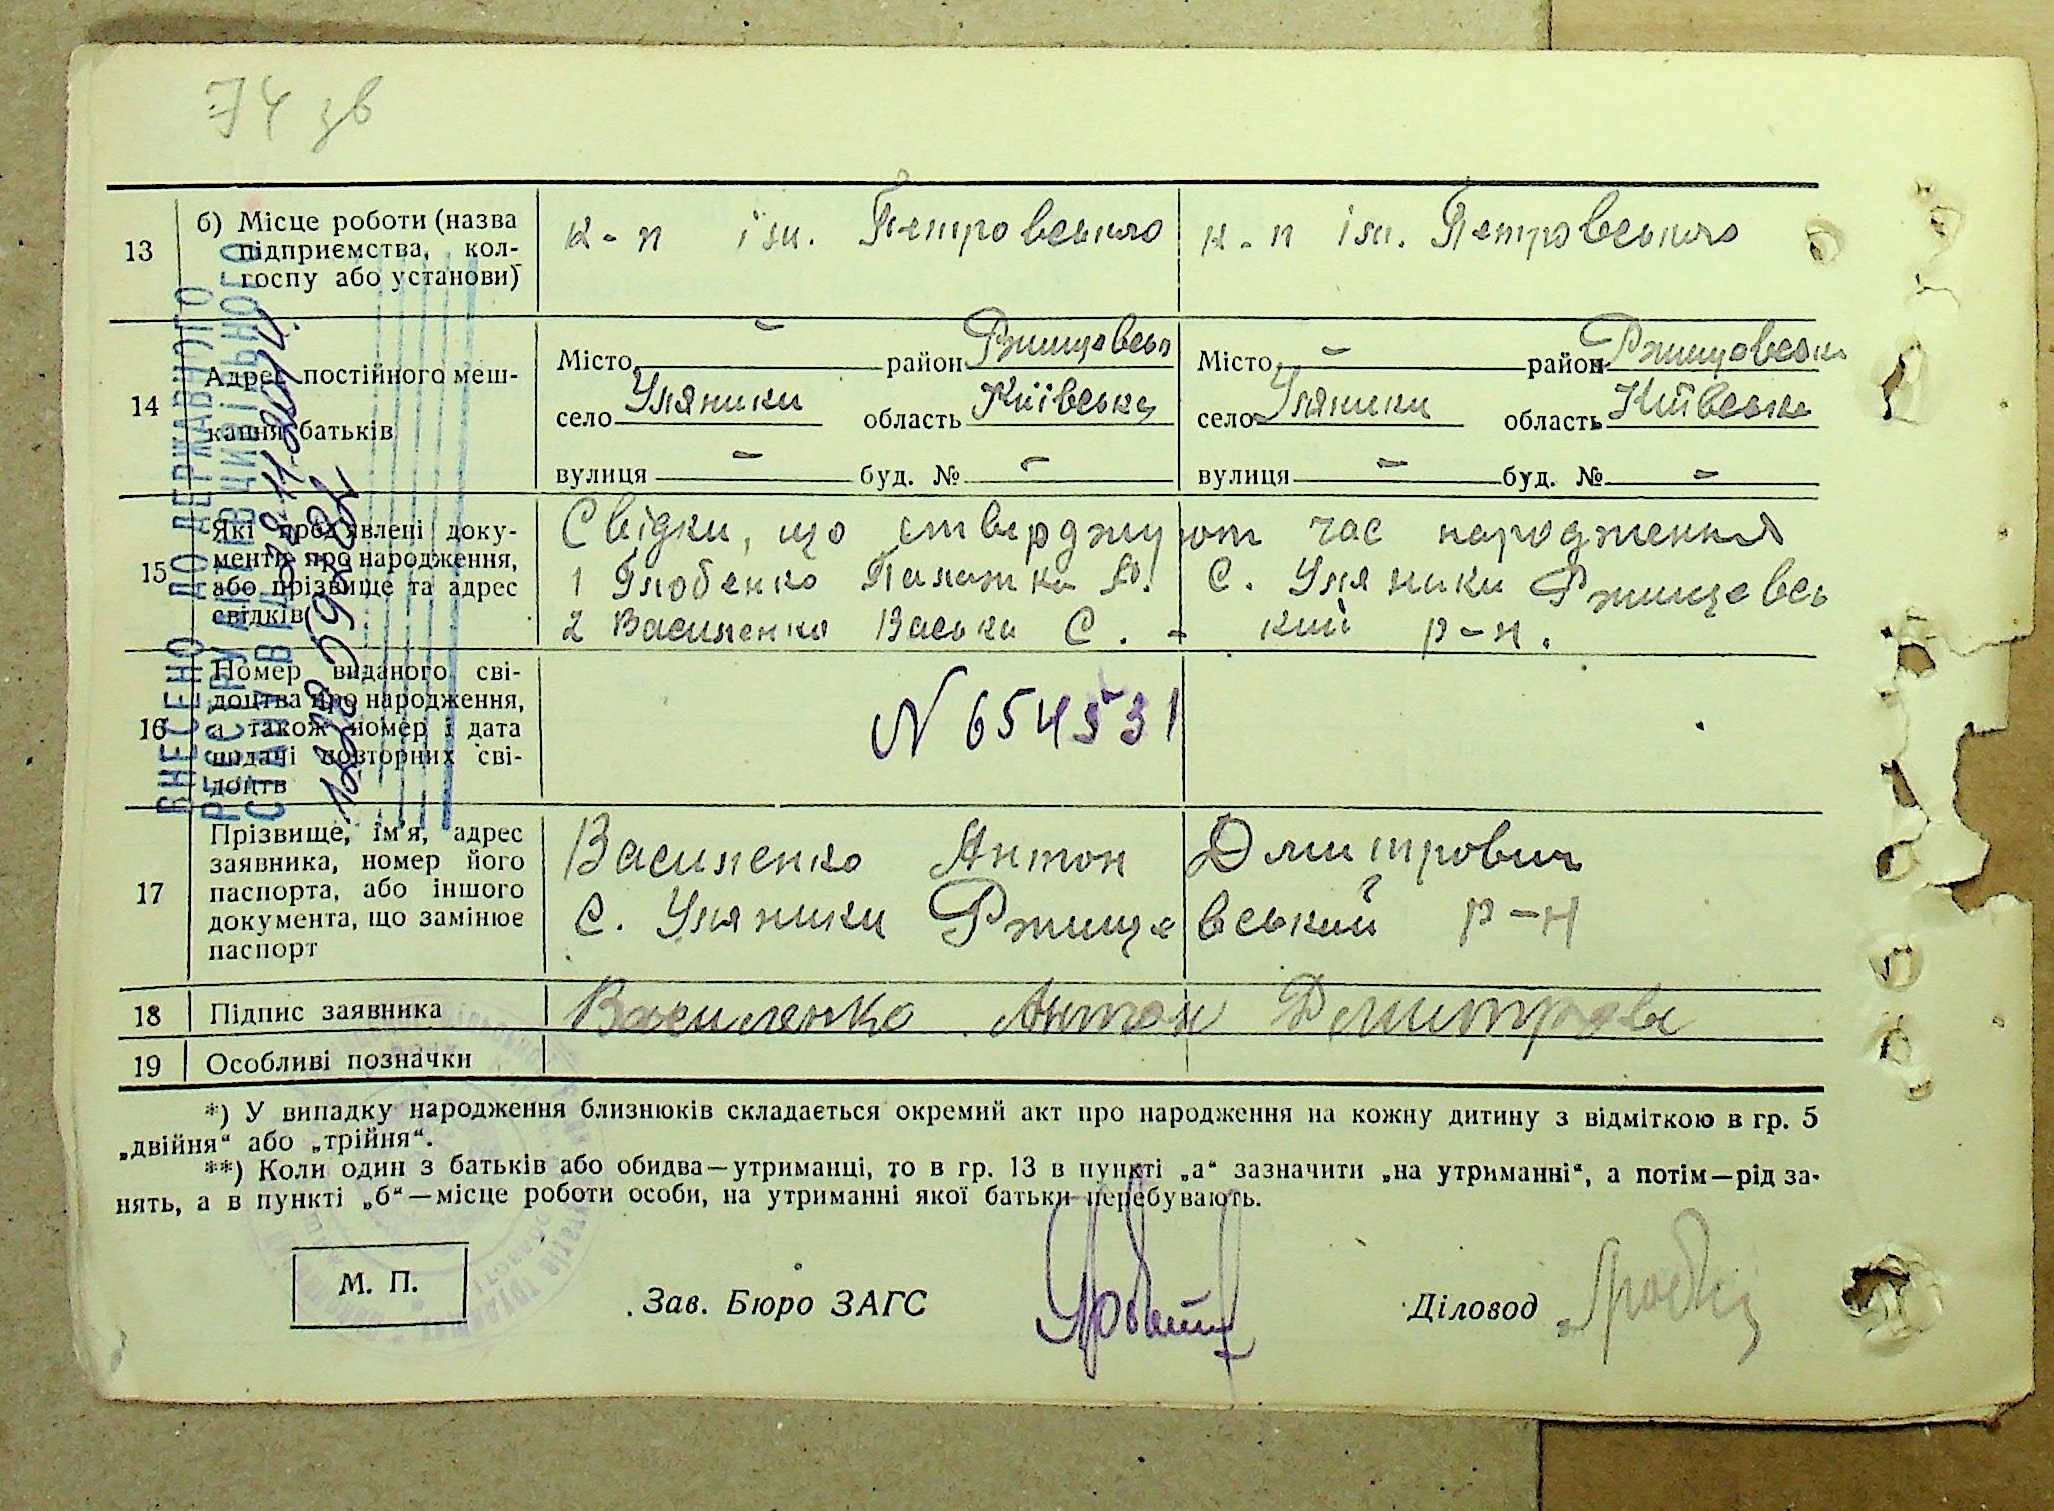 74 зв
13
б) Місце роботи (назва підприємства, колгоспу або установи)
к-п ім. Петровського
к-п ім. Петровського
14
Адрес постійного мешкання батьків
Місто - район Ржищевськ
село Уляники область Київська
вулиця - буд. № -
Місто - район Ржищевськ
село Уляники область Київська
вулиця - буд. № -
15
Які пред'явлені документи про народження, або прізвище та адрес свідків
Свідки, що стверджуют час народження
1 Глобенко Палажка А. С. Уляники Ржищевсь
2 Василенко Васька С. - кий р-н.
16
Номер виданого свідоцтва про народження, а також номер і дата видачі повторних свідоцтв
N 654531
17
Прізвище, ім'я, адрес заявника, номер його паспорта, або іншого документа, що замінює паспорт
Василенко Антон Дмитрович
С. Уляники Ржищевський р-н
18
Підпис заявника
Василенко Антон Дмитрови
19
Особливі позначки
*) У випадку народження близнюків складається окремий акт про народження на кожну дитину з відміткою в гр. 5
„двійня“ або „трійня“.
**) Коли один з батьків або обидва—утриманці, то в гр. 13 в пункті „а“ зазначити „на утриманні“, а потім—рід за-
нять, а в пункті „б“—місце роботи особи, на утриманні якої батьки перебувають.
М. П.
Зав. Бюро ЗАГС
Діловод
ВНЕСЕНО ДО ДЕРЖАВНОГО
РЕЄСТРУ АКТІВ ЦИВІЛЬНОГО
СТАНУ